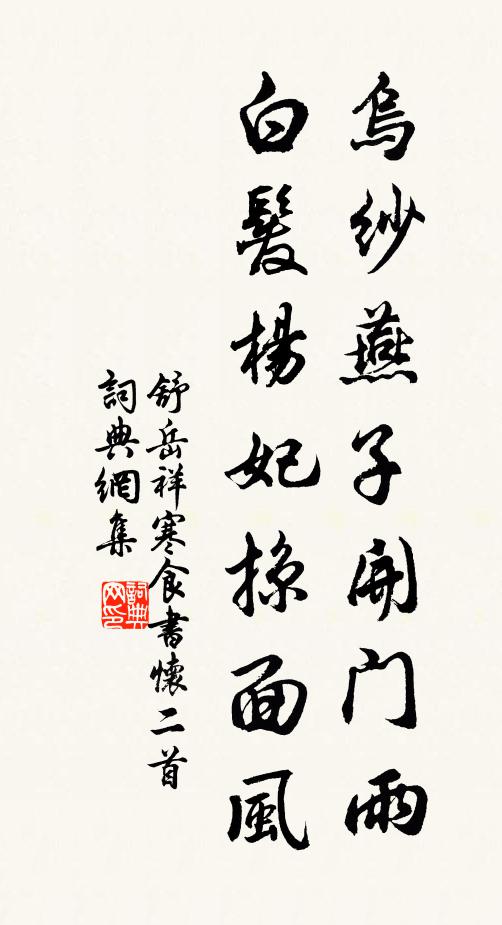 烏紗燕子開门雨
白髮楊妃掠面風
舒岳祥寒食書懷二首
詞典網集
詞典网印